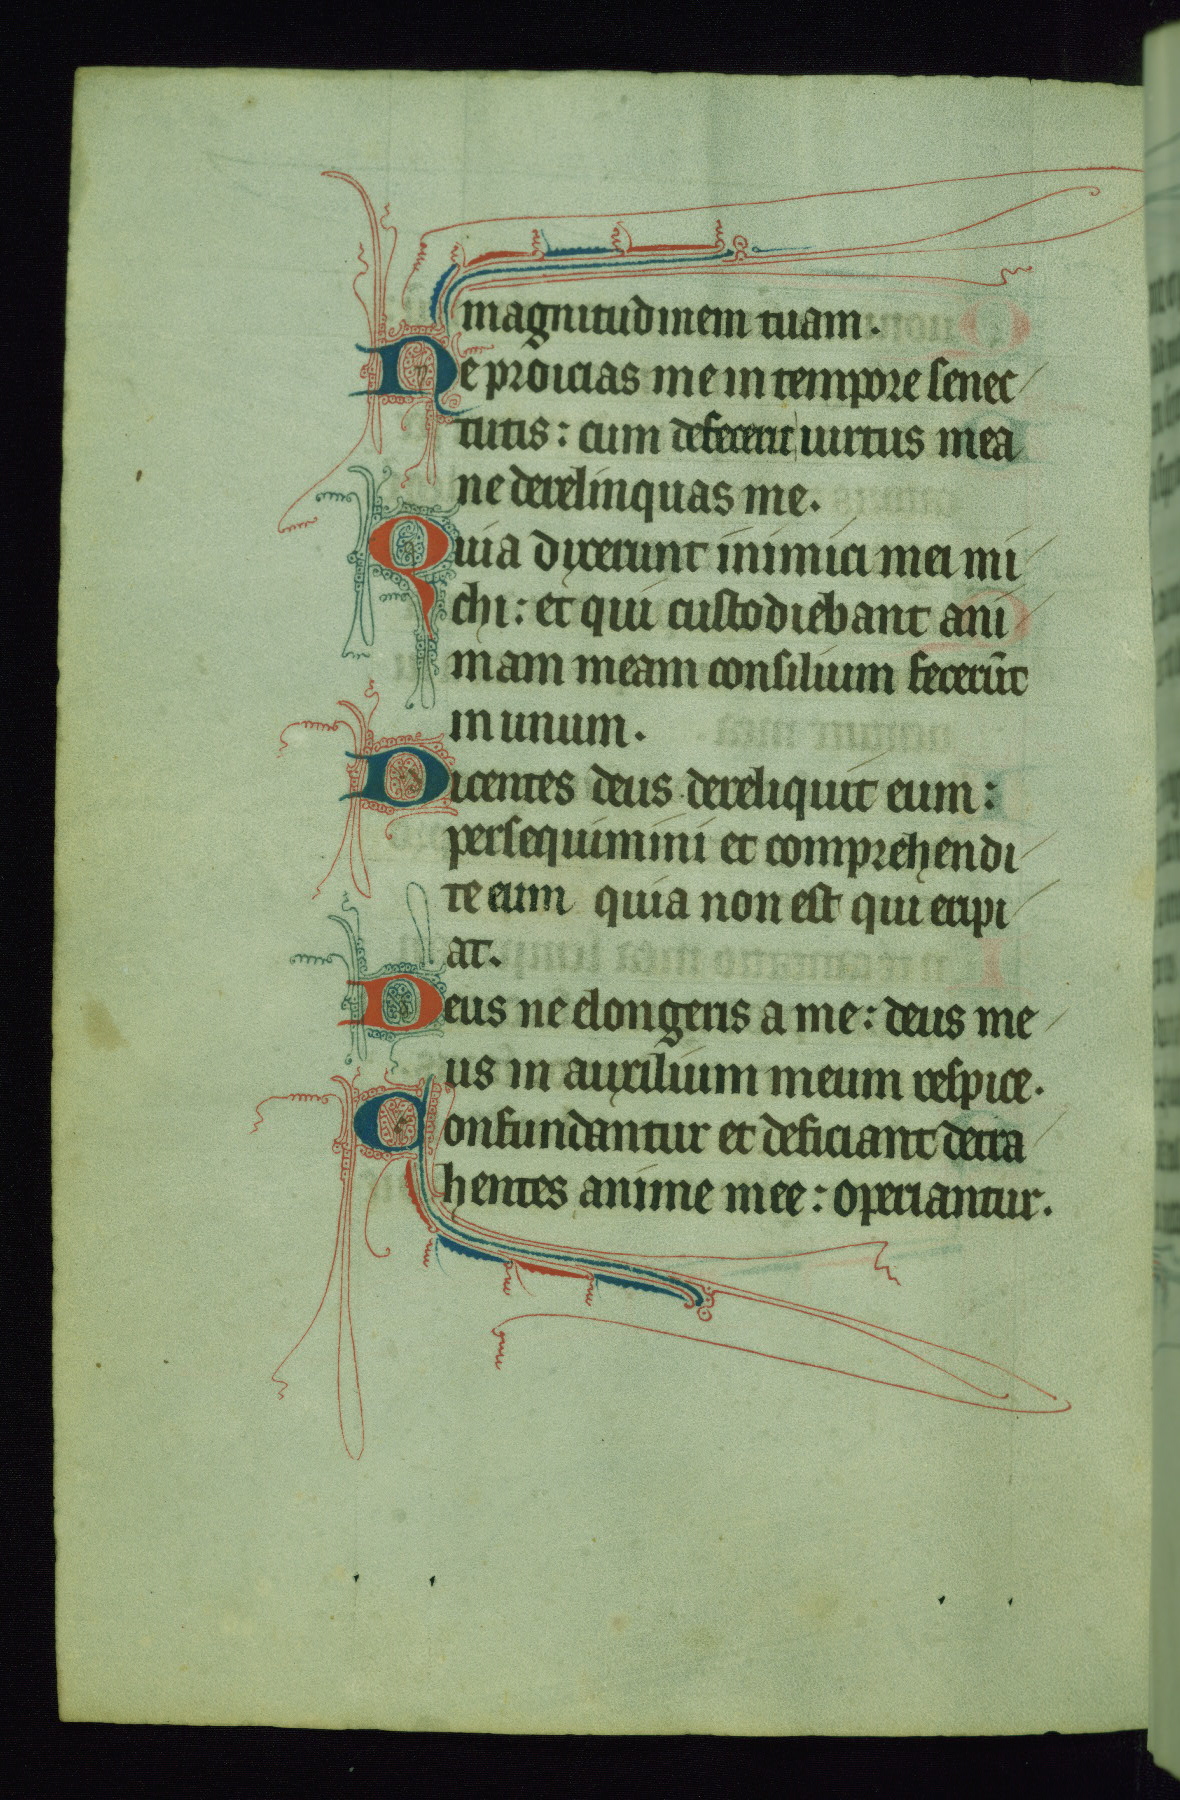 magnitudinem tuam.
Ne proicias me in tempore senec
tutis: cum defecerit uirtus mea
ne derelinquas me.
Quia dixerunt inimici mei mi
chi: et qui custodiebant ani
mam meam consilium fecerūt
in unum.
Dicentes deus dereliquit eum:
persequimini et comprehendi
te eum quia non est qui eripi
at.
Deus ne elongeris a me: deus me
us in auxilium meum respice.
Confundantur et deficiant detra
hentes anime mee: operiantur.